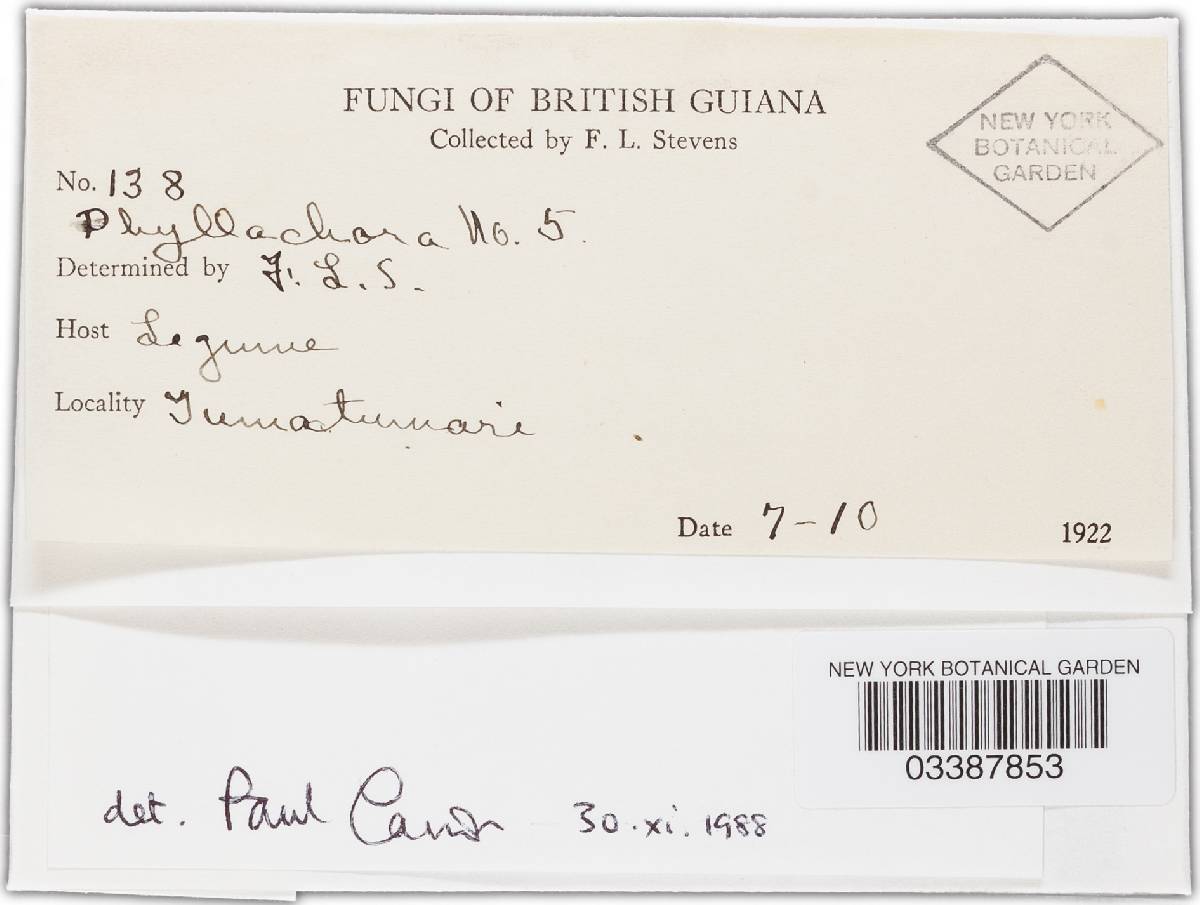 FUNGI OF BRITISH GUIANA
Collected by F. L. Stevens
NEW YORK
BOTANICAL
GARDEN
No. 138
Phyllachora No. 5.
Determined by F. L. S.
Host Legume
Locality Tumatumari
Date 7-10 1922
NEW YORK BOTANICAL GARDEN
03387853
det. Paul Cannon 30.xi.1988